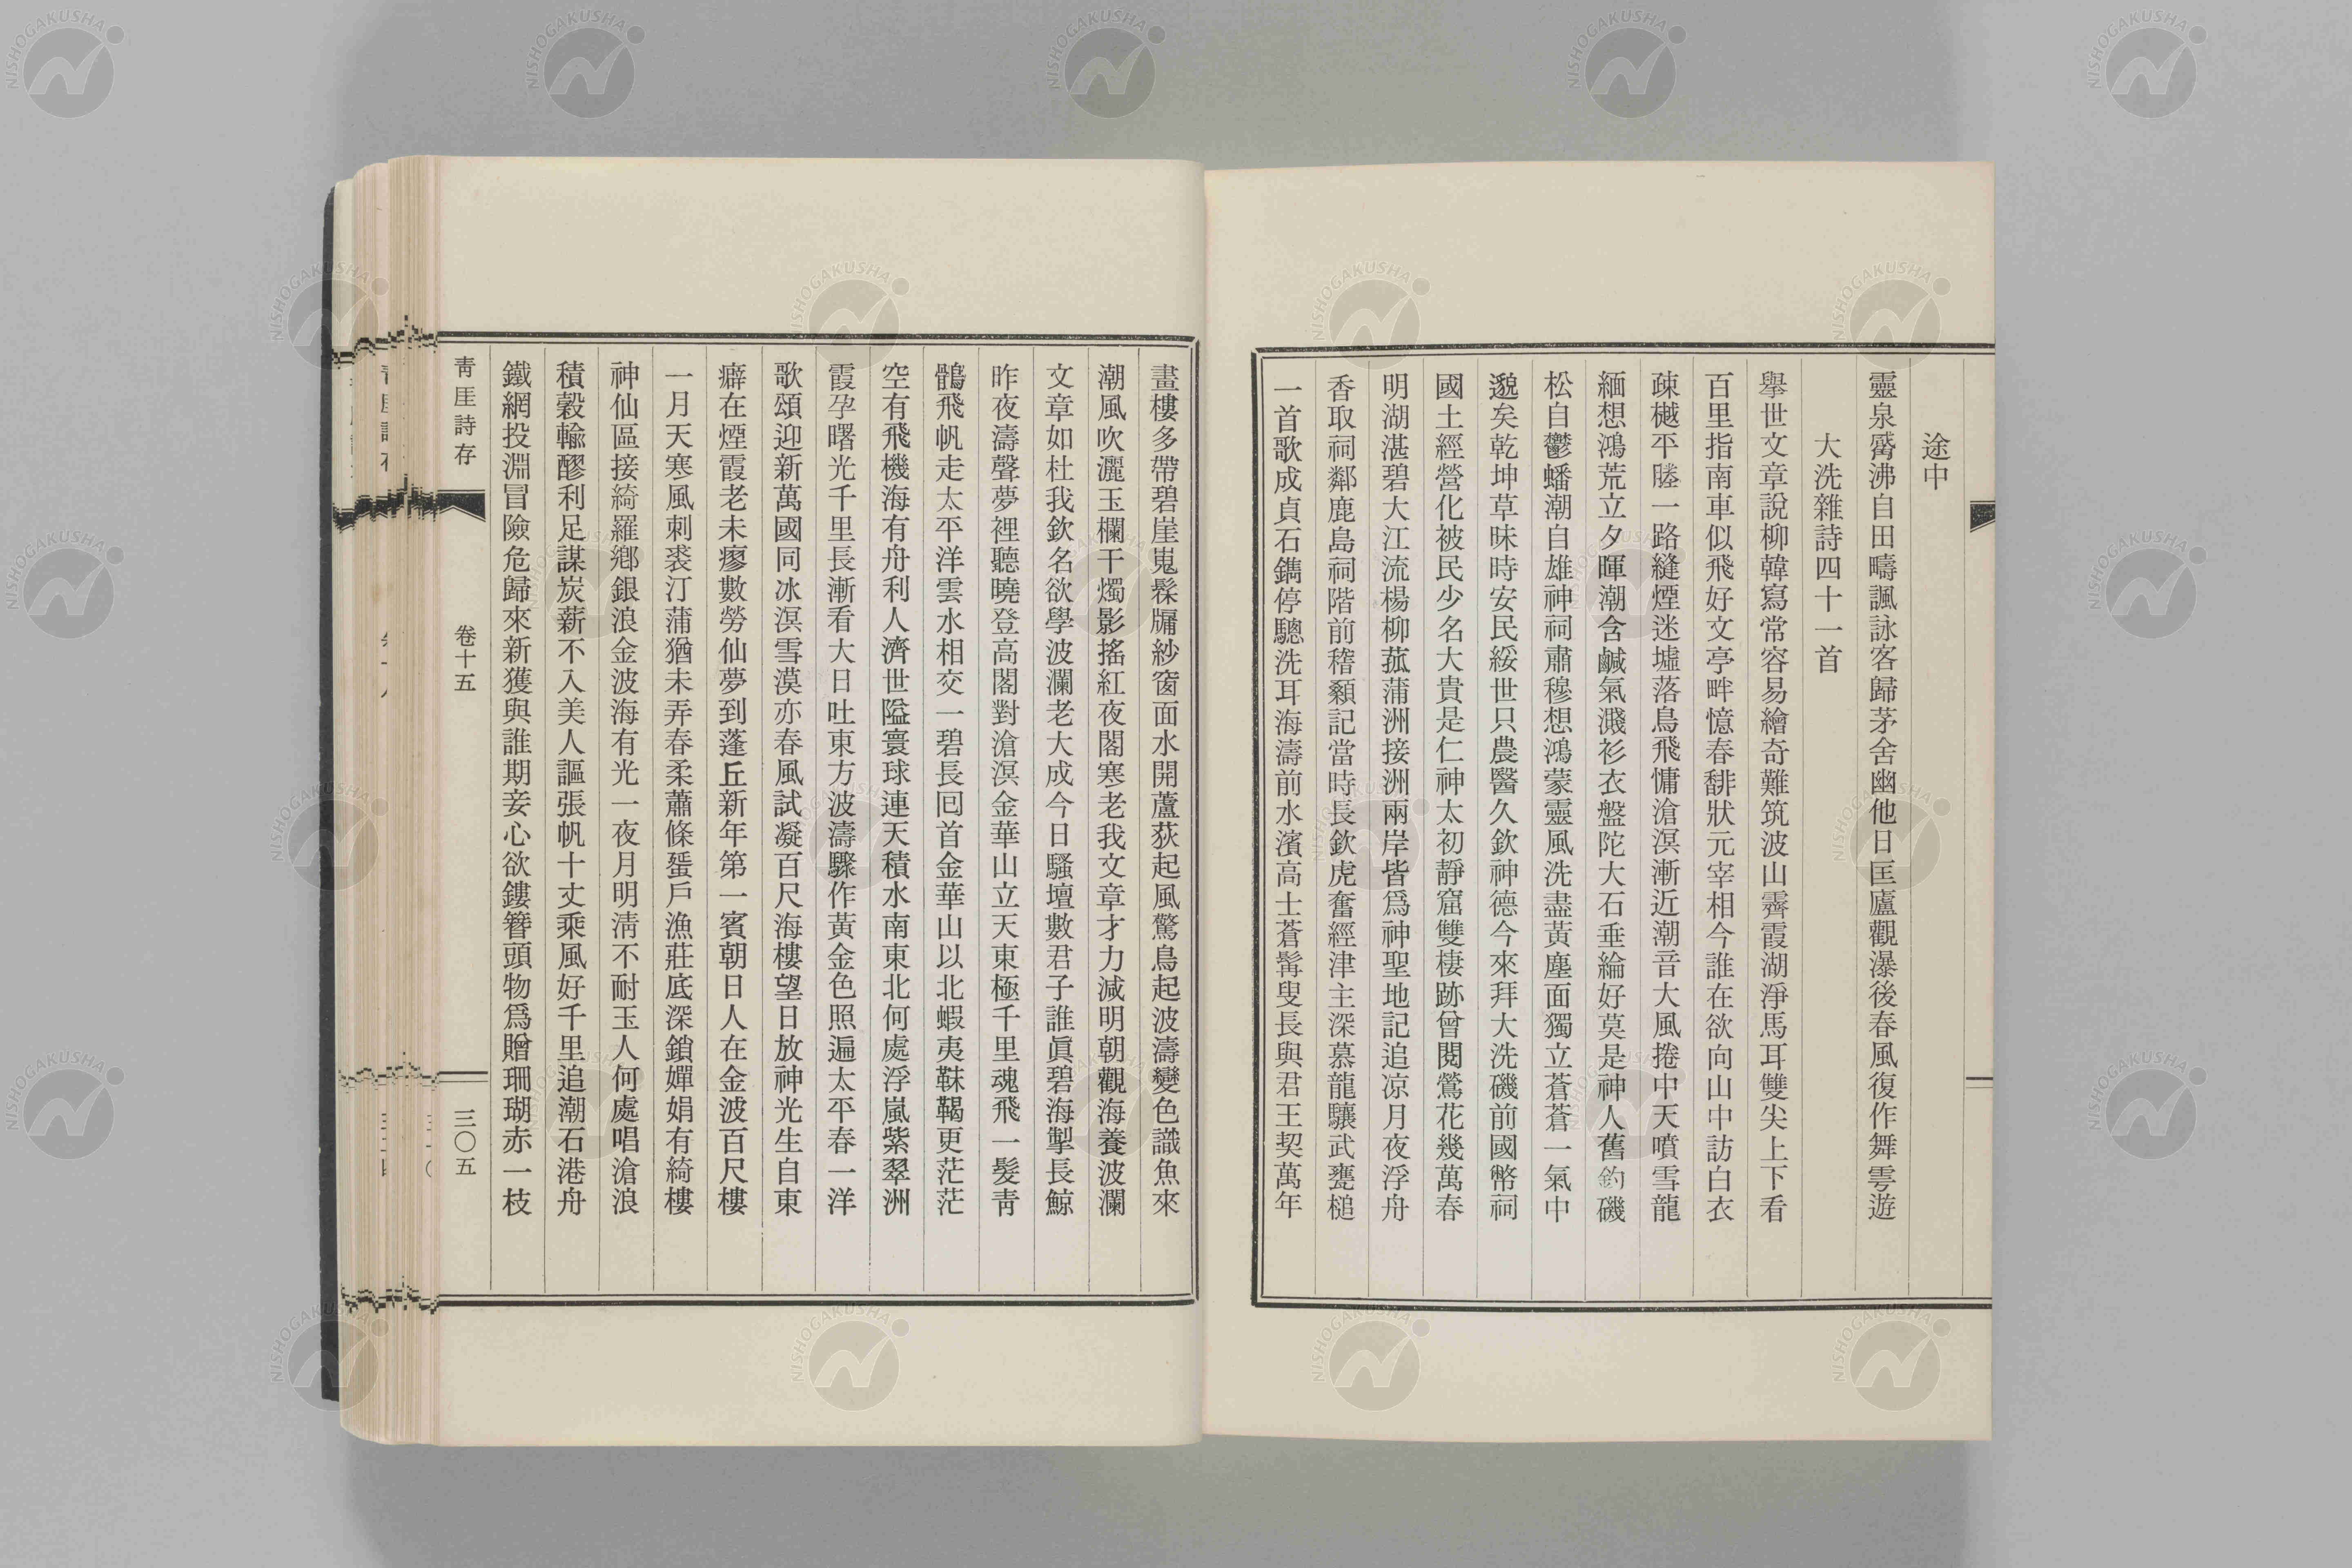 途中
靈泉觱沸自田疇諷詠客歸茅舍幽他日匡廬觀瀑後春風復作舞雩遊
大洗雜詩四十一首
擧世文章說柳韓寫常容易繪奇難筑波山霽霞湖淨馬耳雙尖上下看
百里指南車似飛好文亭畔憶春馡狀元宰相今誰在欲向山中訪白衣
疎樾平塍一路縫煙迷墟落鳥飛慵滄溟漸近潮音大風捲中天噴雪龍
緬想鴻荒立夕暉潮含鹹氣濺衫衣盤陀大石垂綸好莫是神人舊釣磯
松自鬱蟠潮自雄神祠肅穆想鴻蒙靈風洗盡黃塵面獨立蒼蒼一氣中
邈矣乾坤草昧時安民綏世只農醫久欽神德今來拜大洗磯前國幣祠
國土經營化被民少名大貴是仁神太初靜窟雙棲跡曾閱鶯花幾萬春
明湖湛碧大江流楊柳菰蒲洲接洲兩岸皆爲神聖地記追凉月夜浮舟
香取祠鄰鹿島祠階前稽顙記當時長欽虎奮經津主深慕龍驤武甕槌
一首歌成貞石鐫停驄洗耳海濤前水濱高士蒼髯叟長與君王契萬年
畫樓多帶碧崖嵬髹牖紗窗面水開蘆荻起風驚鳥起波濤變色識魚來
潮風吹灑玉欄干燭影搖紅夜閣寒老我文章才力減明朝觀海養波瀾
文章如杜我欽名欲學波瀾老大成今日騷壇數君子誰眞碧海掣長鯨
昨夜濤聲夢裡聽曉登高閣對滄溟金華山立天東極千里魂飛一髮靑
鶻飛帆走太平洋雲水相交一碧長囘首金華山以北蝦夷靺鞨更茫茫
空有飛機海有舟利人濟世隘寰球連天積水南東北何處浮嵐紫翠洲
霞孕曙光千里長漸看大日吐東方波濤驟作黃金色照遍太平春一洋
歌頌迎新萬國同冰溟雪漠亦春風試凝百尺海樓望日放神光生自東
癖在煙霞老未瘳數勞仙夢到蓬丘新年第一賓朝日人在金波百尺樓
一月天寒風刺裘汀蒲猶未弄春柔蕭條蜑戶漁莊底深鎖嬋娟有綺樓
神仙區接綺羅鄉銀浪金波海有光一夜月明淸不耐玉人何處唱滄浪
積穀輸醪利足謀炭薪不入美人謳張帆十丈乘風好千里追潮石港舟
鐵網投淵冒險危歸來新獲與誰期妾心欲鏤簪頭物爲贈珊瑚赤一枝
靑厓詩存
卷十五
三〇五